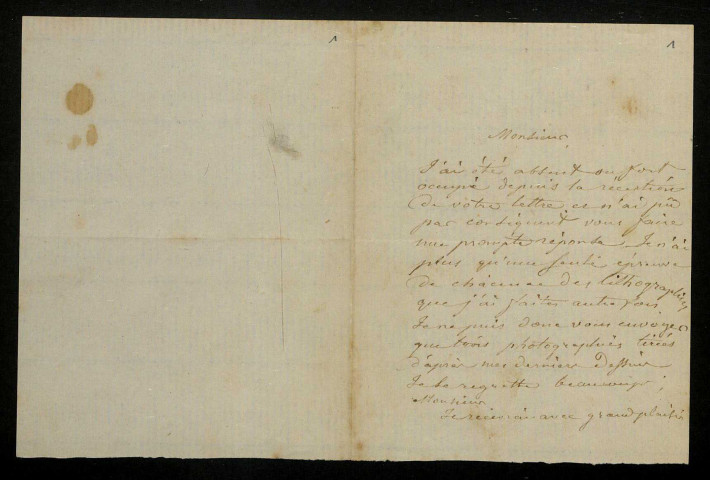 1
1
Monsieur,
J'ai été absent ou fort
occupé depuis la réception
de votre lettre et n'ai pû
par conséquent vous faire
une prompte réponse. Je n'ai
plus qu'une seule épreuve
de chacune des lithographies
que j'ai faites autrefois
Je ne puis donc vous envoyer
que trois photographies tirées
d'après mes derniers dessins
Je le regrette beaucoup,
Monsieur
Je recevrai avec grand plaisir